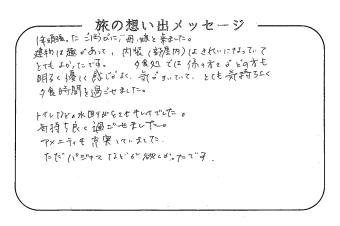 旅の想い出メッセージ
1年頑張ったごほうびに、娘と来ました。
建物は趣があって、内装(部屋内)はきれいになっていて
とてもよかったです。夕食処では係りの方がどの方も
明るく優しく感じがよく、気がきいていて、とても気持ちよく
夕食時間を過ごせました。
トイレなどの水回りがとてもキレイでした。
気持ち良く過ごせました。
アメニティも充実していました。
ただパジャマなどが欲しかったです。